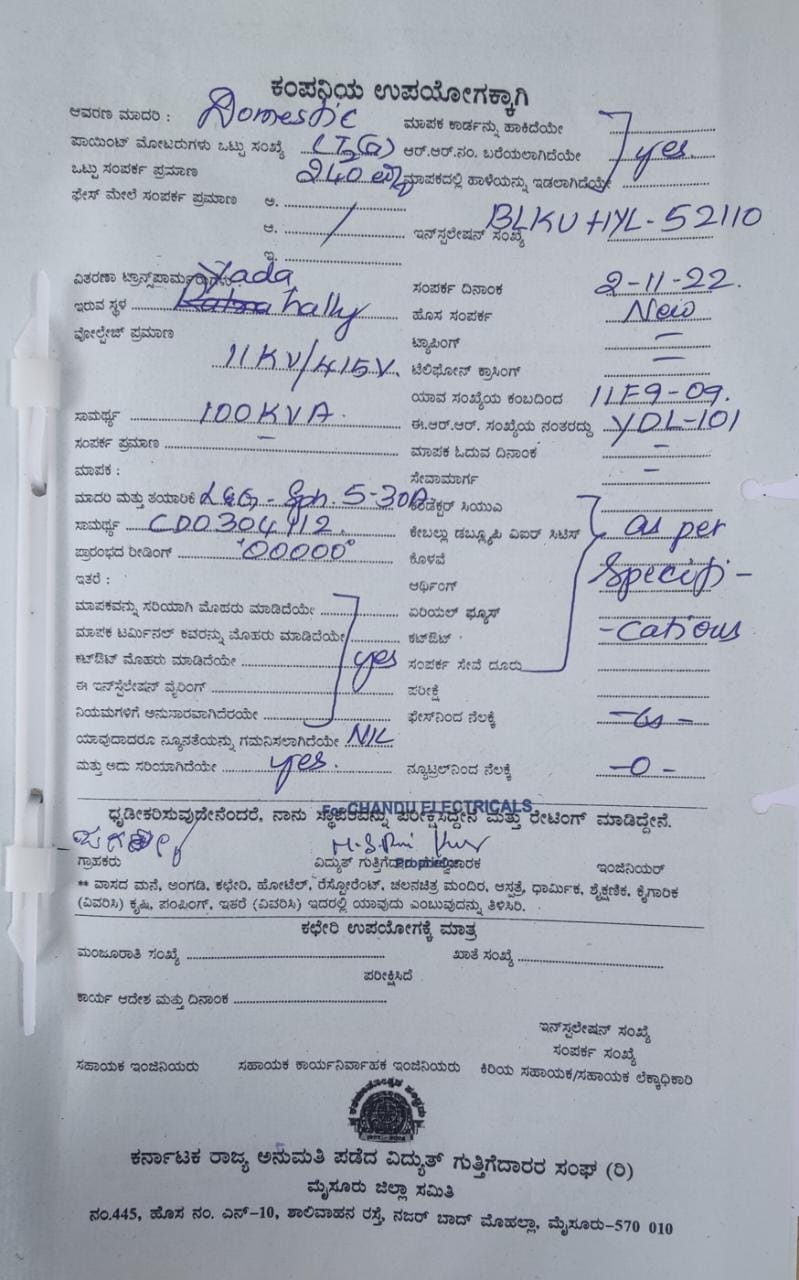 ಕಂಪನಿಯ ಉಪಯೋಗಕ್ಕಾಗಿ
ಆವರಣ ಮಾದರಿ : Domestic ಮಾಪಕ ಕಾರ್ಡನ್ನು ಹಾಕಿದೆಯೇ
ಪಾಯಿಂಟ್ ಮೋಟರುಗಳು ಒಟ್ಟು ಸಂಖ್ಯೆ LT2(a) ಆರ್.ಆರ್.ನಂ. ಬರೆಯಲಾಗಿದೆಯೇ yes.
ಒಟ್ಟು ಸಂಪರ್ಕ ಪ್ರಮಾಣ 240 ಮಾಪಕದಲ್ಲಿ ಹಾಳೆಯನ್ನು ಇಡಲಾಗಿದೆಯೇ
ಫೇಸ್ ಮೇಲೆ ಸಂಪರ್ಕ ಪ್ರಮಾಣ ಅ.
ಆ. ಇನ್‌ಸ್ಟಲೇಷನ್ ಸಂಖ್ಯೆ BLKUHYL-52110
ಇ.
ವಿತರಣಾ Yada ಸಂಪರ್ಕ ದಿನಾಂಕ 2-11-22.
ಇರುವ ಸ್ಥಳ hally ಹೊಸ ಸಂಪರ್ಕ New
ವೋಲ್ಟೇಜ್ ಪ್ರಮಾಣ ಟ್ಯಾಪಿಂಗ್ –
11KV/415V. ಟೆಲಿಫೋನ್ ಕ್ರಾಸಿಂಗ್ –
ಯಾವ ಸಂಖ್ಯೆಯ ಕಂಬದಿಂದ 11F9-09.
ಸಾಮರ್ಥ್ಯ 100KVA. ಈ.ಆರ್.ಆರ್. ಸಂಖ್ಯೆಯ ನಂತರದ್ದು YDL-101
ಸಂಪರ್ಕ ಪ್ರಮಾಣ – ಮಾಪಕ ಓದುವ ದಿನಾಂಕ –
ಮಾಪಕ : ಸೇವಾಮಾರ್ಗ –
ಮಾದರಿ ಮತ್ತು ತಯಾರಿಕೆ L&G - Sph. 5-30A ಸಿಯುಎ
ಸಾಮರ್ಥ್ಯ CD0304112. ಕೇಬಲ್ಲು ಡಬ್ಲ್ಯೂಪಿ ವಿಐರ್ ಸಿಟಿಸ್ as per
ಪ್ರಾರಂಭದ ರೀಡಿಂಗ್ '00000' ಕೊಳವೆ
ಇತರೆ : ಆರ್ಥಿಂಗ್ Specifi-
ಮಾಪಕವನ್ನು ಸರಿಯಾಗಿ ಮೊಹರು ಮಾಡಿದೆಯೇ ಏರಿಯಲ್ ಫ್ಯೂಸ್
ಮಾಪಕ ಟರ್ಮಿನಲ್ ಕವರನ್ನು ಮೊಹರು ಮಾಡಿದೆಯೇ ಕಟ್‌ಔಟ್ -cations
ಕಟ್‌ಔಟ್ ಮೊಹರು ಮಾಡಿದೆಯೇ yes ಸಂಪರ್ಕ ಸೇವೆ ದೂರು
ಈ ಇನ್‌ಸ್ಟಲೇಷನ್ ವೈರಿಂಗ್ ಪರೀಕ್ಷೆ
ನಿಯಮಗಳಿಗೆ ಅನುಸಾರವಾಗಿದೆರಯೇ ಫೇಸ್‌ನಿಂದ ನೆಲಕ್ಕೆ
ಯಾವುದಾದರೂ ನ್ಯೂನತೆಯನ್ನು ಗಮನಿಸಲಾಗಿದೆಯೇ NIL
ಮತ್ತು ಅದು ಸರಿಯಾಗಿದೆಯೇ yes. ನ್ಯೂಟ್ರಲ್‌ನಿಂದ ನೆಲಕ್ಕೆ -0-
For CHANDU ELECTRICALS
ಧೃಡೀಕರಿಸುವುದೇನೆಂದರೆ, ನಾನು ಸ್ಥಾಪನವನ್ನು ಪರೀಕ್ಷಿಸಿದ್ದೇನೆ ಮತ್ತು ರೇಟಿಂಗ್ ಮಾಡಿದ್ದೇನೆ.
ಗ್ರಾಹಕರು ವಿದ್ಯುತ್ ಇಂಜಿನಿಯರ್
** ವಾಸದ ಮನೆ, ಅಂಗಡಿ, ಕಛೇರಿ, ಹೋಟೆಲ್, ರೆಸ್ಟೋರೆಂಟ್, ಚಲನಚಿತ್ರ ಮಂದಿರ, ಆಸ್ಪತ್ರೆ, ಧಾರ್ಮಿಕ, ಶೈಕ್ಷಣಿಕ, ಕೈಗಾರಿಕ
(ವಿವರಿಸಿ) ಕೃಷಿ, ಪಂಪಿಂಗ್, ಇತರೆ (ವಿವರಿಸಿ) ಇದರಲ್ಲಿ ಯಾವುದು ಎಂಬುವುದನ್ನು ತಿಳಿಸಿರಿ.
ಕಛೇರಿ ಉಪಯೋಗಕ್ಕೆ ಮಾತ್ರ
ಮಂಜೂರಾತಿ ಸಂಖ್ಯೆ ಖಾತೆ ಸಂಖ್ಯೆ
ಪರೀಕ್ಷಿಸಿದೆ
ಕಾರ್ಯ ಆದೇಶ ಮತ್ತು ದಿನಾಂಕ
ಇನ್‌ಸ್ಟಲೇಷನ್ ಸಂಖ್ಯೆ
ಸಂಪರ್ಕ ಸಂಖ್ಯೆ
ಸಹಾಯಕ ಇಂಜಿನಿಯರು ಸಹಾಯಕ ಕಾರ್ಯನಿರ್ವಾಹಕ ಇಂಜಿನಿಯರು ಕಿರಿಯ ಸಹಾಯಕ/ಸಹಾಯಕ ಲೆಕ್ಕಾಧಿಕಾರಿ
ಕರ್ನಾಟಕ ರಾಜ್ಯ ಅನುಮತಿ ಪಡೆದ ವಿದ್ಯುತ್ ಗುತ್ತಿಗೆದಾರರ ಸಂಘ (ರಿ)
ಮೈಸೂರು ಜಿಲ್ಲಾ ಸಮಿತಿ
ನಂ.445, ಹೊಸ ನಂ. ಎನ್-10, ಶಾಲಿವಾಹನ ರಸ್ತೆ, ನಜರ್ ಬಾದ್ ಮೊಹಲ್ಲಾ, ಮೈಸೂರು-570 010